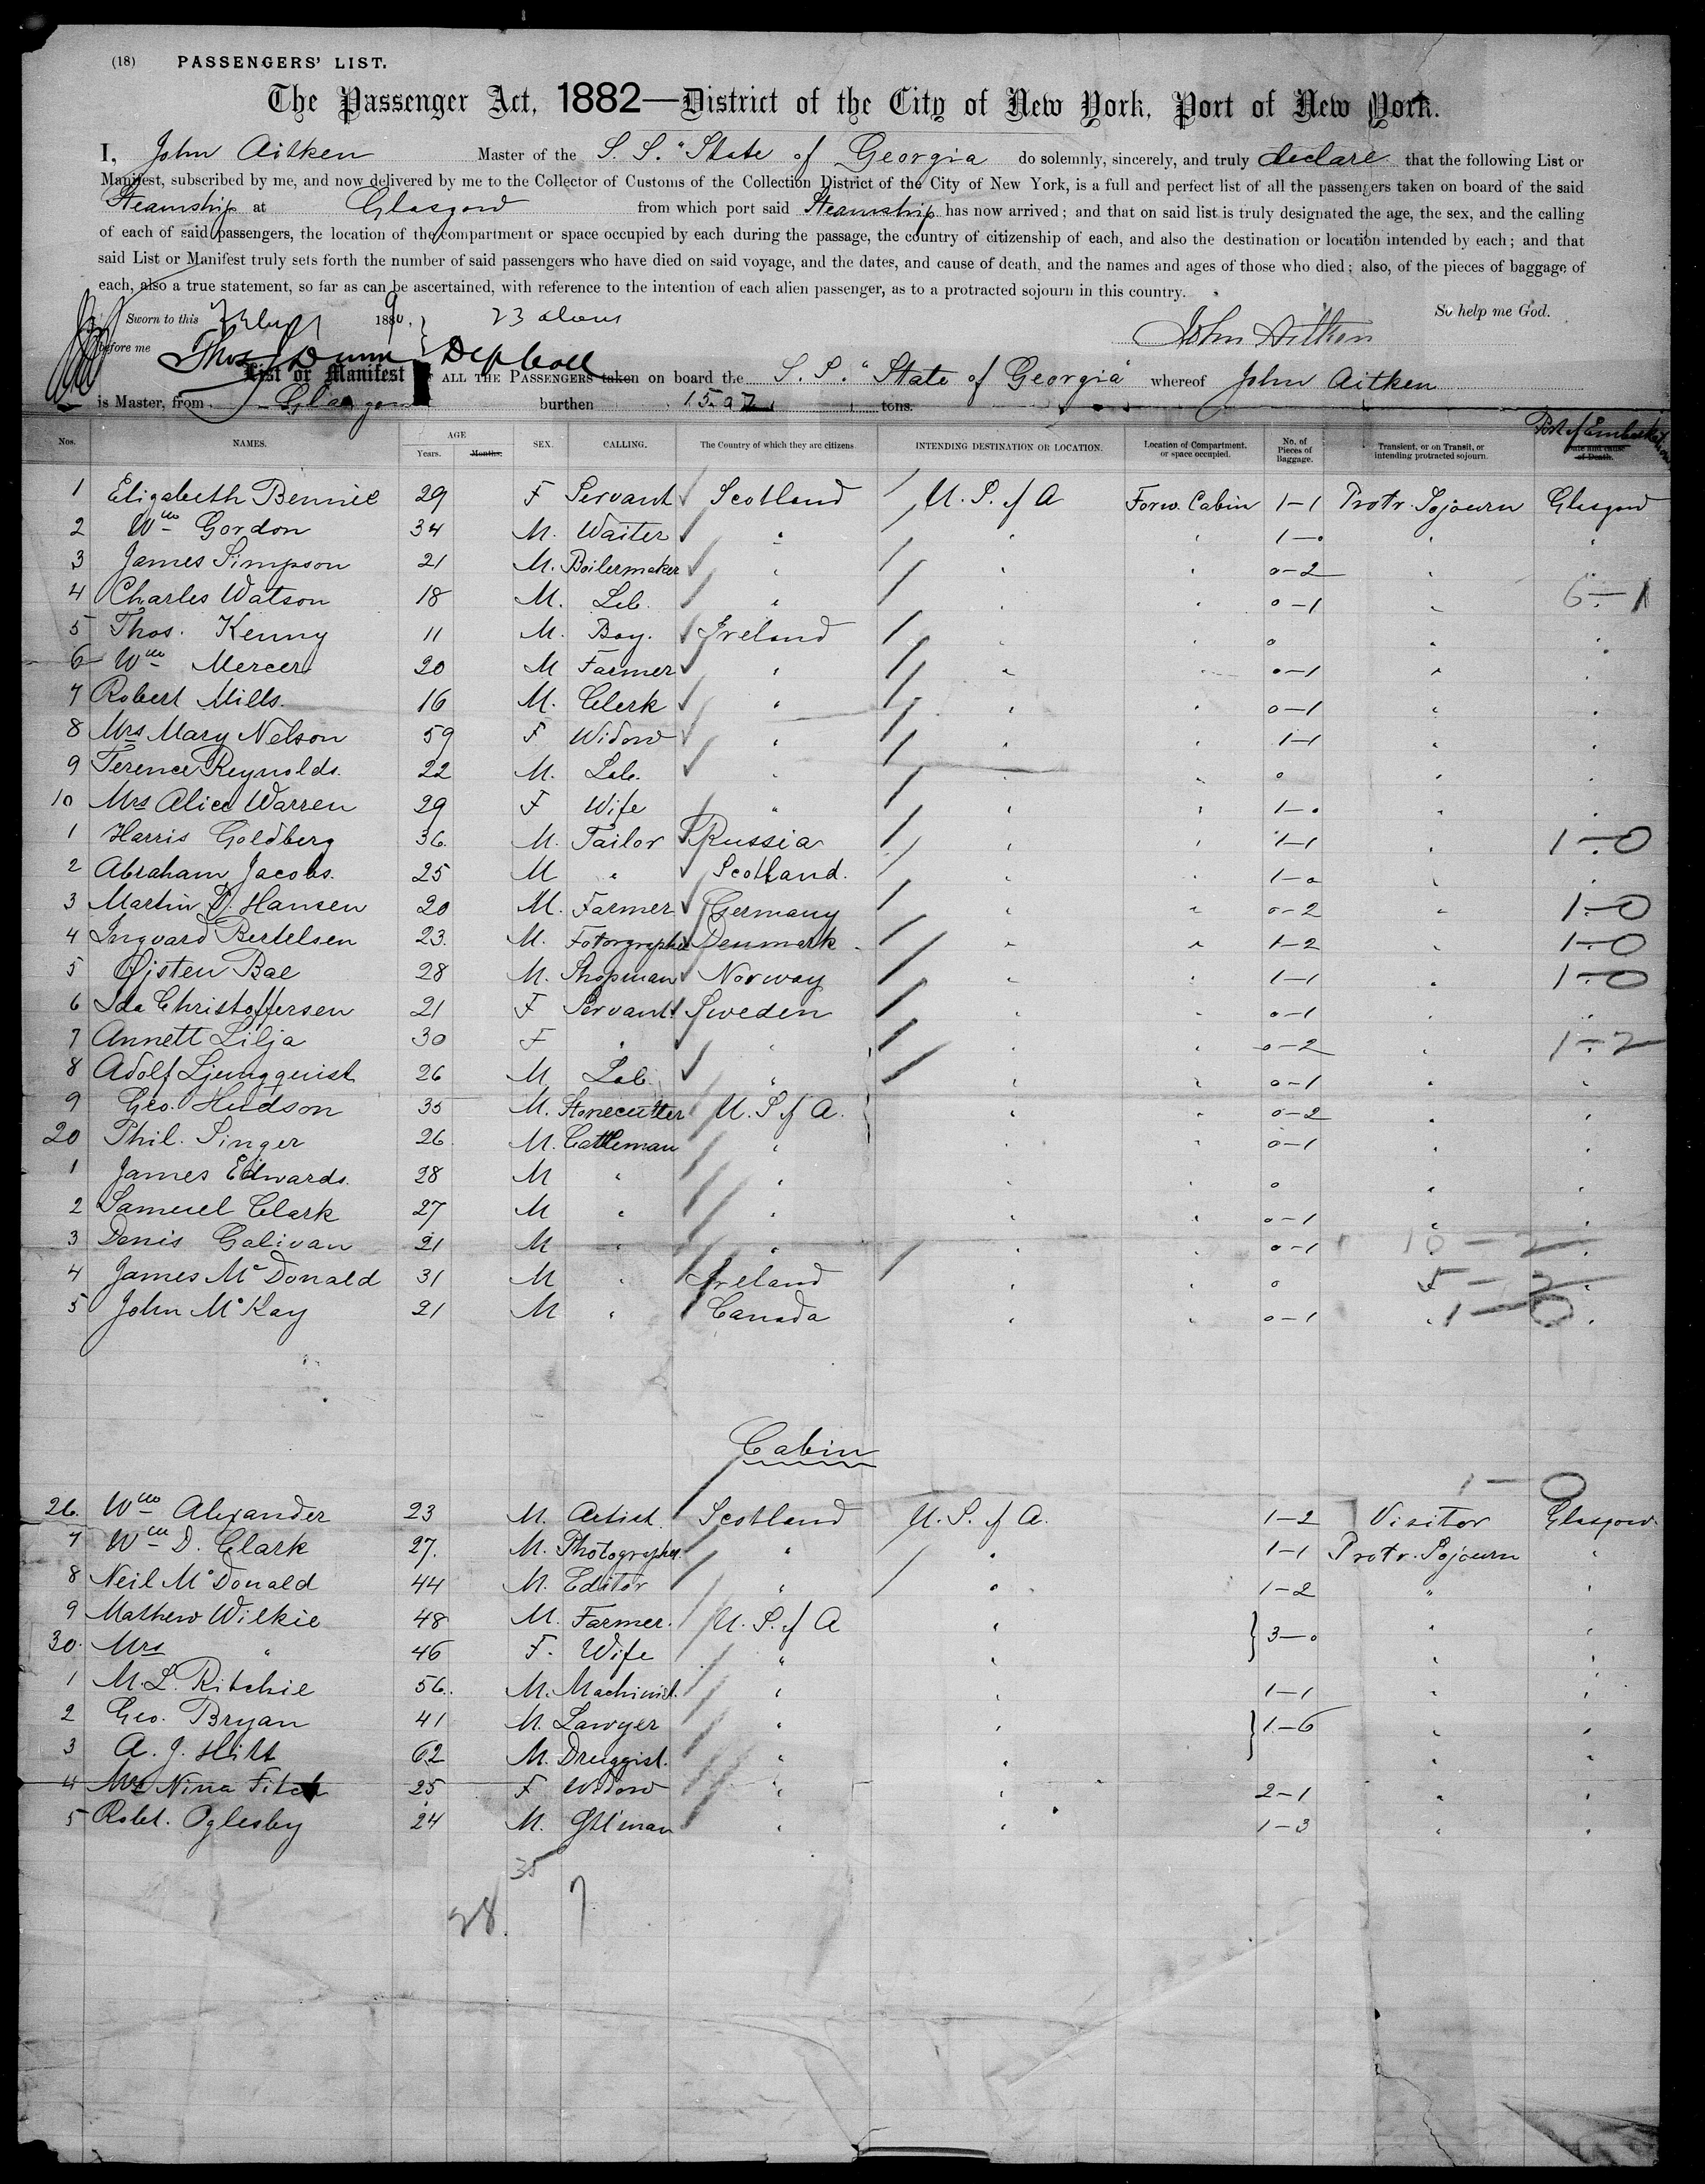 (18) PASSENGERS' LIST.
The Passenger Act, 1882—District of the City of New York, Port of New York.
I, John Aitken Master of the S. S. "State of Georgia do solemnly, sincerely, and truly declare that the following List or
Manifest, subscribed by me, and now delivered by me to the Collector of Customs of the Collection District of the City of New York, is a full and perfect list of all the passengers taken on board of the said
Steamship at Glasgow from which port said Steamship has now arrived; and that on said list is truly designated the age, the sex, and the calling
of each of said passengers, the location of the compartment or space occupied by each during the passage, the country of citizenship of each, and also the destination or location intended by each; and that
said List or Manifest truly sets forth the number of said passengers who have died on said voyage, and the dates, and cause of death, and the names and ages of those who died; also, of the pieces of baggage of
each, also a true statement, so far as can be ascertained, with reference to the intention of each alien passenger, as to a protracted sojourn in this country.
So help me God.
Sworn to this 1890, 23 aliens
John Aitken
before me Thos J Dunn Dep Coll
List or Manifest of ALL THE PASSENGERS taken on board the S. S. "State of Georgia" whereof John Aitken
is Master, from Glasgow burthen tons.
Nos. NAMES. AGE Years. Months. SEX. CALLING. The Country of which they are citizens INTENDING DESTINATION OR LOCATION. Location of Compartment, or space occupied. No. of Pieces of Baggage. Transient, or on Transit, or intending protracted sojourn. Port of Embarkation Date and cause of Death.
1 Elizabeth Bennie 29 F Servant Scotland U. S. of A Forw. Cabin 1-1 Protr. Sojourn Glasgow
2 Wm Gordon 34 M. Waiter " " " 1-0 " "
3 James Simpson 21 M. Boilermaker " " " 0-2 " "
4 Charles Watson 18 M. Lab. " " " 0-1 " 6-1
5 Thos. Kenny 11 M. Boy. Ireland " " 0 " "
6 Wm Mercer 20 M Farmer " " " 0-1 " "
7 Robert Mills. 16 M. Clerk " " " 0-1 " "
8 Mrs Mary Nelson 59 F Widow " " " 1-1 " "
9 Terence Reynolds. 22 M. Lab. " " " 0 " "
10 Mrs Alice Warren 29 F Wife " " " 1-0 " "
1 Harris Goldberg 36. M. Tailor Russia " " 1-1 " 1-0
2 Abraham Jacobs. 25 M " Scotland. " " 1-0 " "
3 Martin D. Hansen 20 M. Farmer Germany " " 0-2 " 1-0
4 Ingvard Bertelsen 23. M. Denmark " " 1-2 " 1-0
5 Ojsten Bae 28 M. Shopman Norway " " 1-1 " 1-0
6 Ida Christoffersen 21 F Servant Sweden " " 0-1 " "
7 Annett Lilja 30 F " " " " 0-2 " 1-2
8 Adolf Ljungquist 26 M Lab. " " " 0-1 " "
9 Geo. Hudson 35 M. Stonecutter U. S of A. " " 0-2 " "
20 Phil. Singer 26. M. Cattleman " " " 0-1 " "
1 James Edwards. 28 M " " " " 0 " "
2 Samuel Clark 27 M " " " " 0-1 " "
3 Denis Galivan 21 M " " " " 0-1 10-2 "
4 James McDonald 31 M " Ireland " " 0 5-2 "
5 John McKay 21 M " Canada " " 0-1 " 1-0 "
Cabin
1-0
26. Wm Alexander 23 M. Artist. Scotland U. S. of A. 1-2 Visitor Glasgow.
7 Wm D. Clark 27. M. Photographer. " " 1-1 Protr. Sojourn "
8 Neil McDonald 44 M. Editor " " 1-2 " "
9 Mathew Wilkie 48 M. Farmer. U. S. of A " } 3-0 " "
30. Mrs " 46 F. Wife " " " "
1 M. L. Ritchie 56. M. Machinist. " " 1-1 " "
2 Geo. Bryan 41 M. Lawyer " " } 1-6 " "
3 A. J. Hitt 62 M. Druggist. " " " "
4 Mrs Nina Fitch 25 F Widow " " 2-1 " "
5 Robt. Oglesby 24 M. Gtl'man " " 1-3 " "
35
28. 7